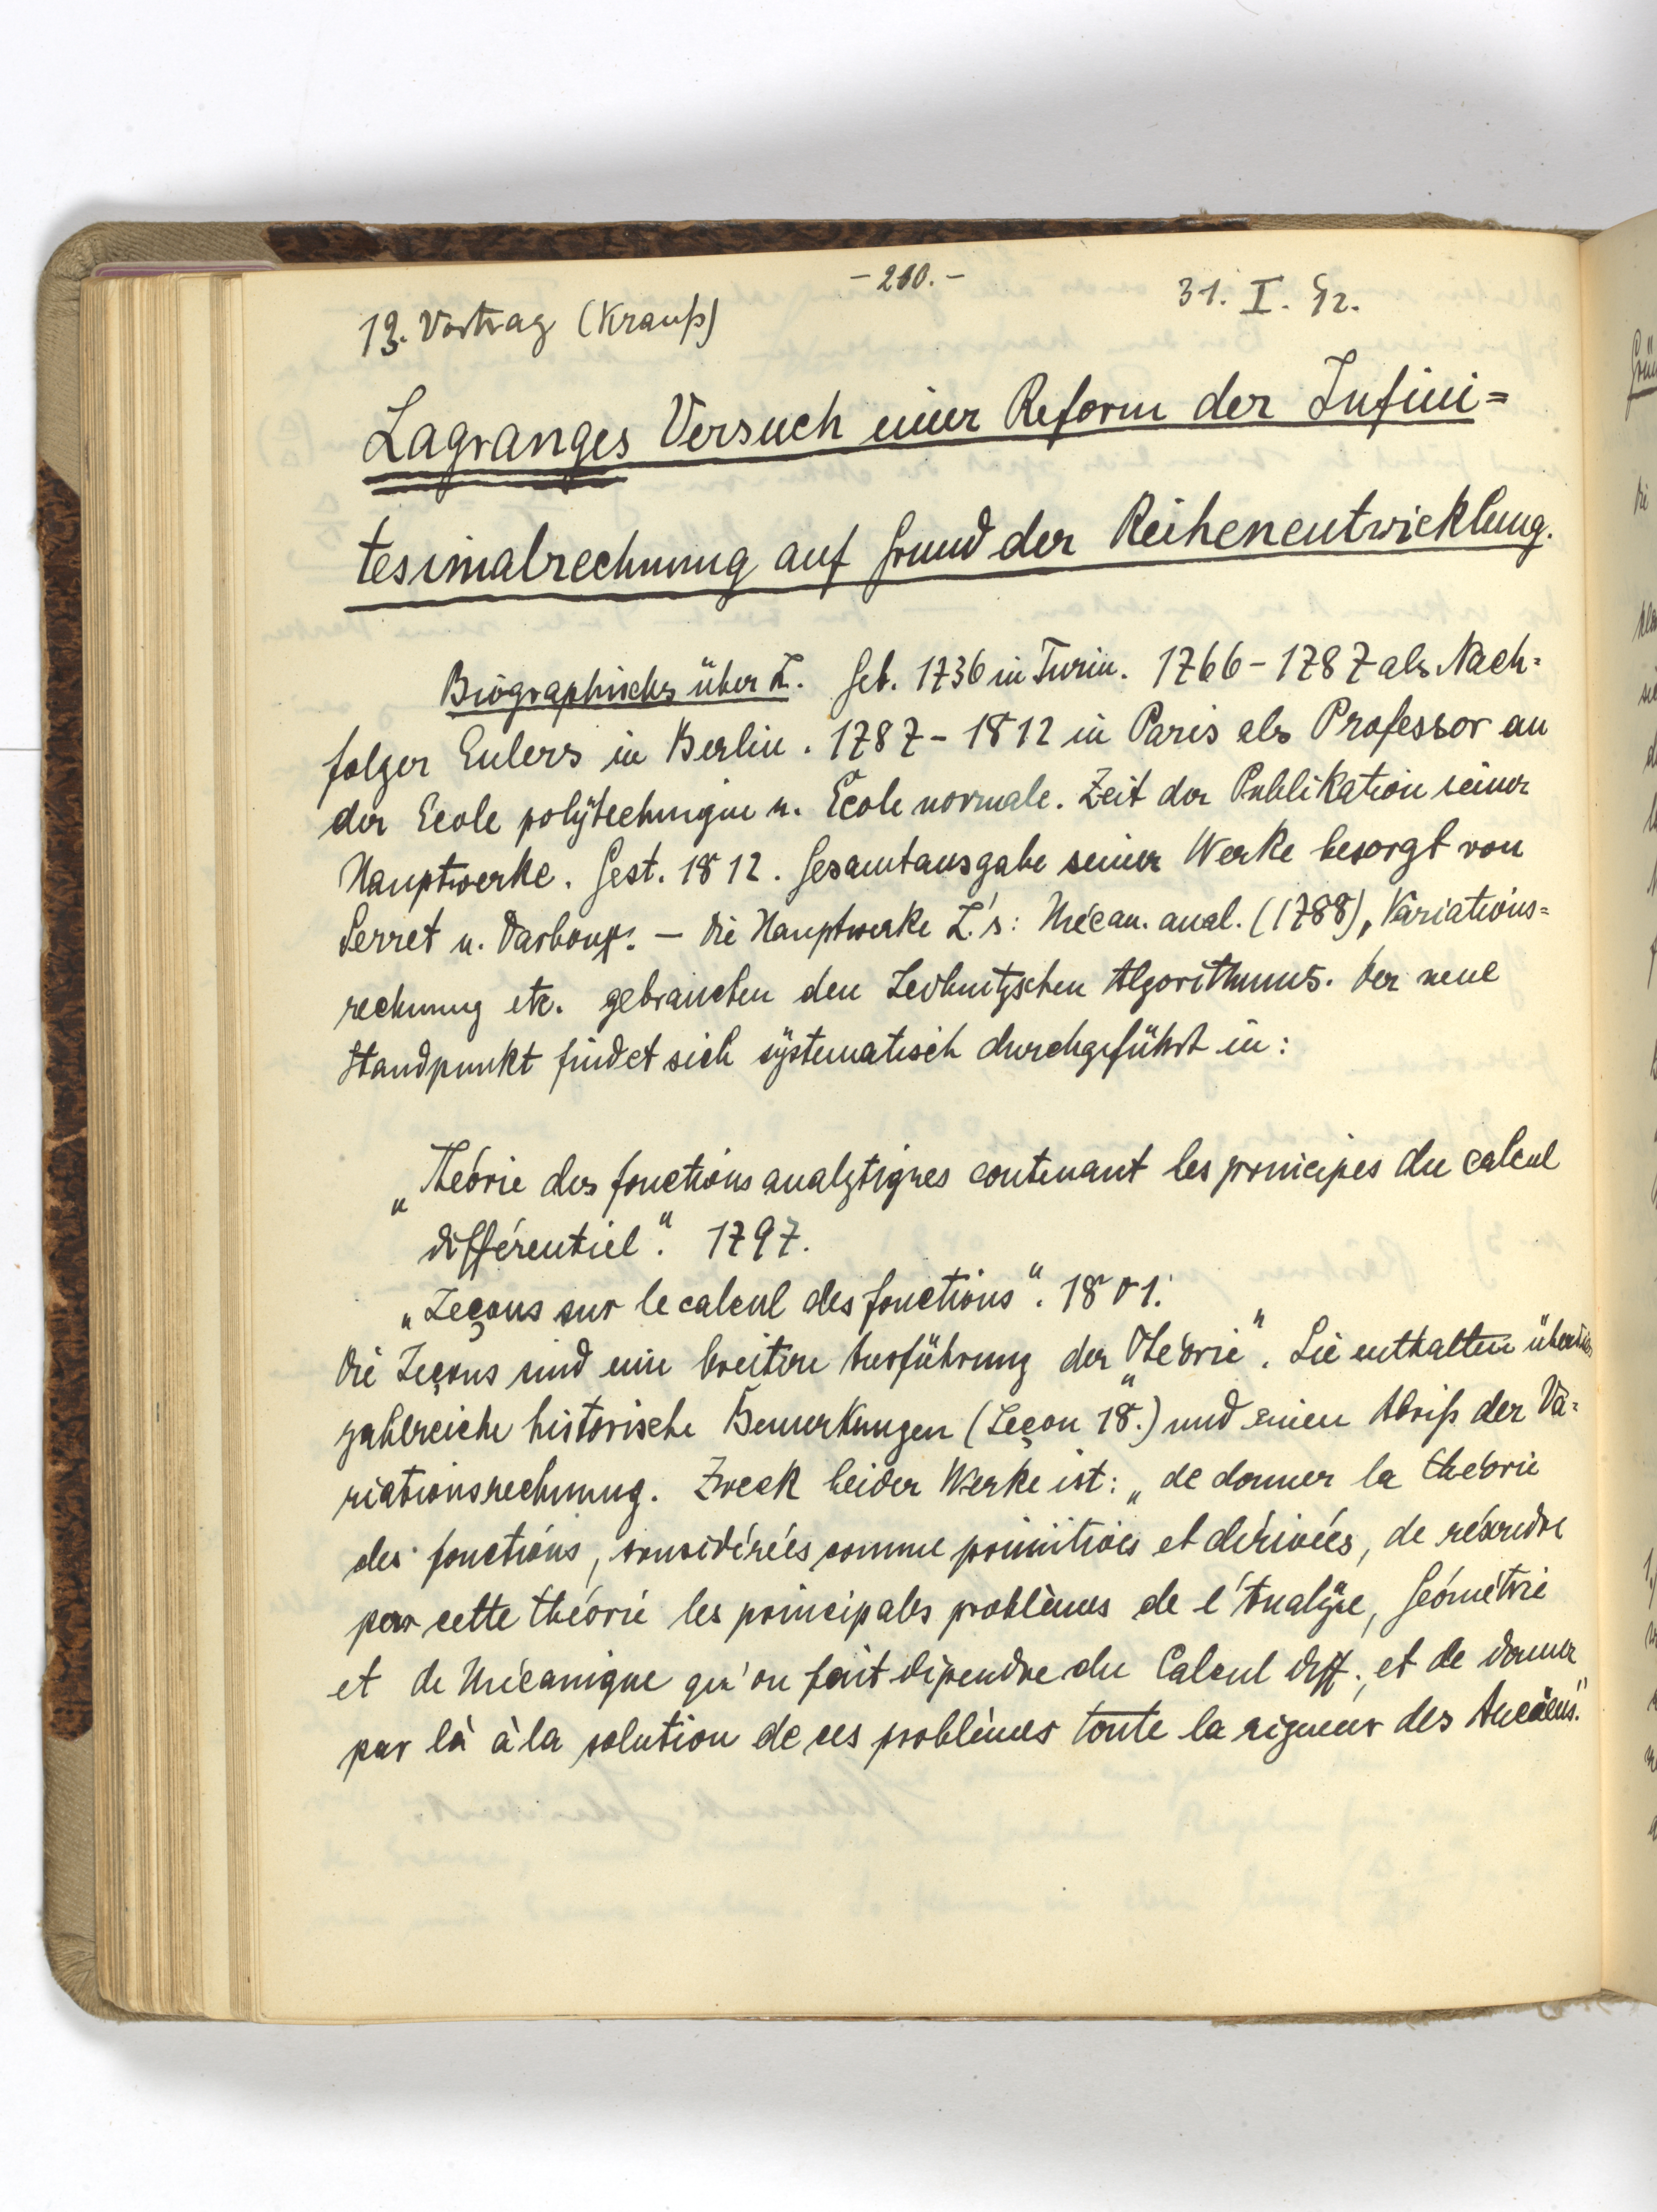 - 210. -
13. Vortrag (Krauß) 31. I. 12.
Lagranges Versuch einer Reform der Infini=
tesimalrechnung auf Grund der Reihenentwicklung.
Biographisches über L. Geb. 1736 in Turin. 1766 - 1787 als Nach=
folger Eulers in Berlin. 1787 - 1812 in Paris als Professor an
der École polÿtechnique u. École normale. Zeit der Publikation seiner
Hauptwerke. Gest. 1812. Gesamtausgabe seiner Werke besorgt von
Serret u. Darboux. — Die Hauptwerke L.'s: Mécan. anal. (1788), Variations=
rechnung etc. gebrauchen den Leibnitzschen Algorithmus. Der neue
Standpunkt findet sich sÿstematisch durchgeführt in:
„Théorie des fonctions analytiques contenant les principes du calcul
différentiel“. 1797.
„Leçons sur le calcul des fonctions“. 1801.
Die Leçons sind eine breitere Ausführung der „Théorie“. Sie enthalten überdies
zahlreiche historische Bemerkungen (Leçon 18.) und einen Abriß der Va=
riationsrechnung. Zweck beider Werke ist: „de donner la théorie
des fonctions, considérées comme primitives et dérivées, de résoudre
par cette théorie les principales problèmes de l'Analÿse, Géométrie
et de Mécanique qu'on fait dépendre du Calcul diff., et de donner
par là à la solution de ces problèmes toute la rigueur des Anciens.“